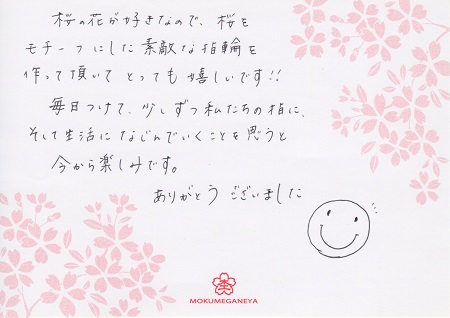 桜の花が好きなので、桜を
モチーフにした素敵な指輪を
作って頂いてとっても嬉しいです!!
毎日つけて、少しずつ私たちの指に、
そして生活になじんでいくことを思うと
今から楽しみです。
ありがとうございました
MOKUMEGANEYA